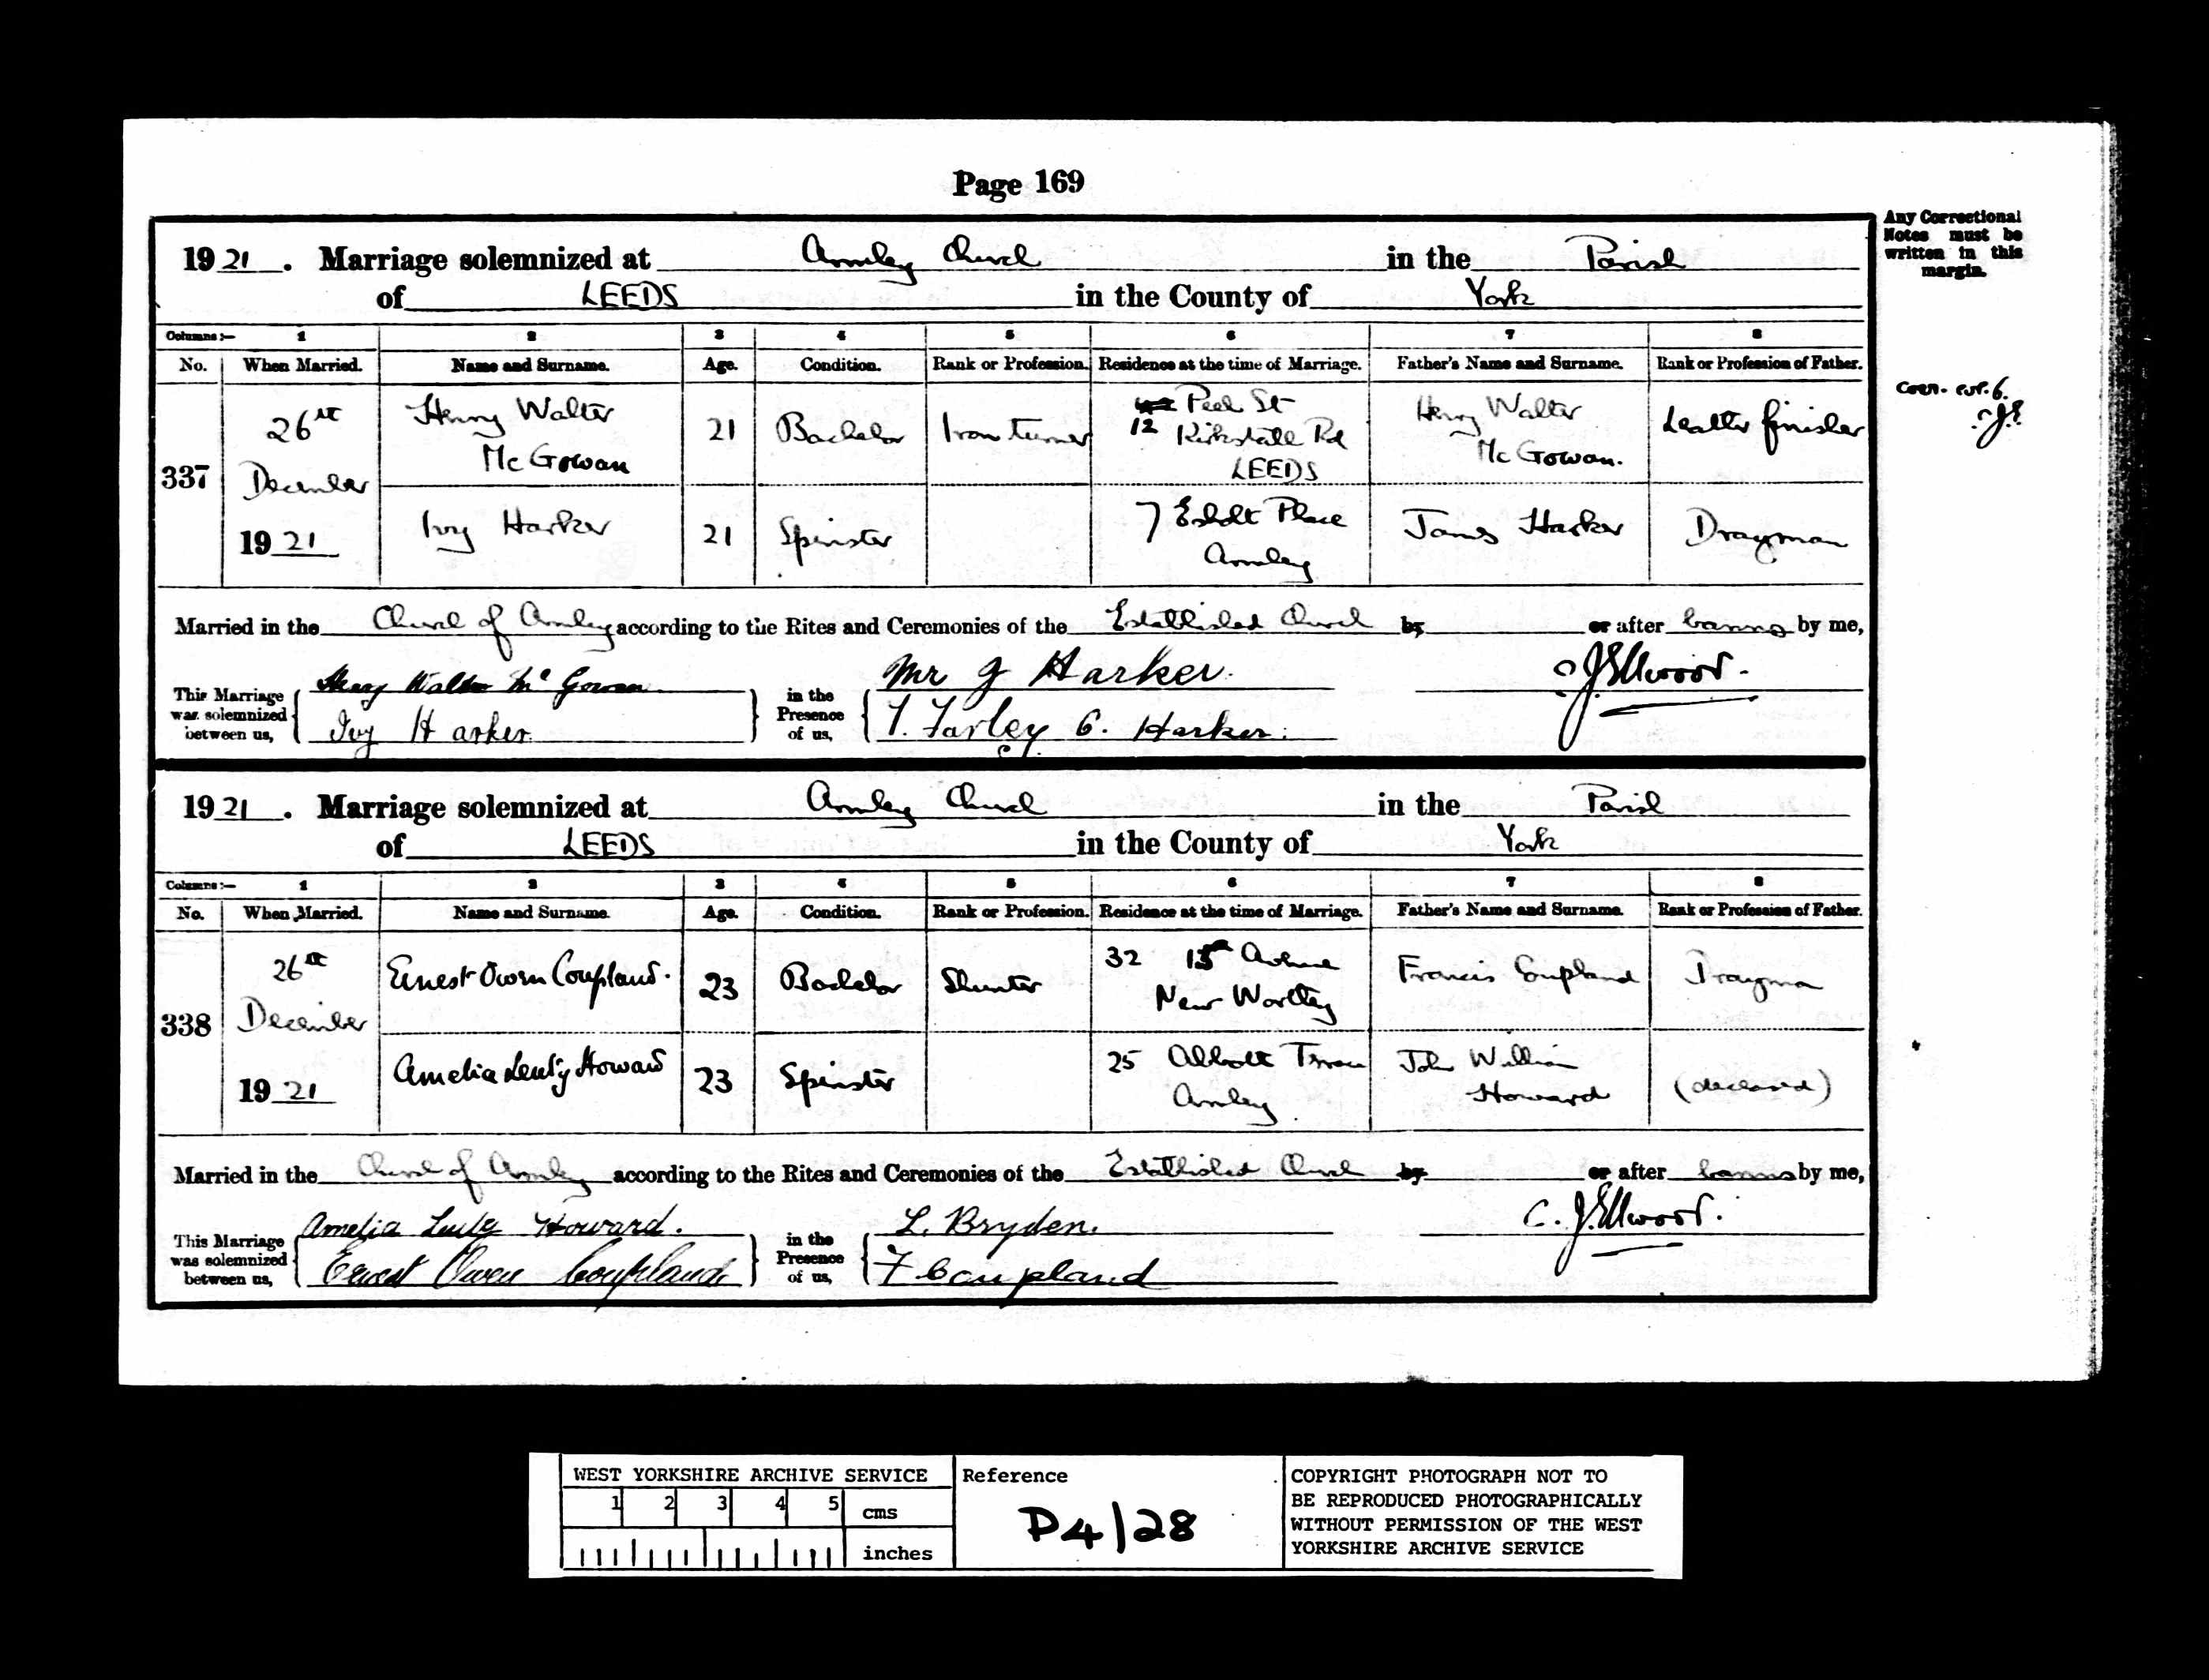 Page 169
Any Correctional
Notes must be
written in this
margin.
1921. Marriage solemnized at Armley Church in the Parish
of LEEDS in the County of York
Columns:— 1 2 3 4 5 6 7 8
No. When Married. Name and Surname. Age. Condition. Rank or Profession. Residence at the time of Marriage. Father's Name and Surname. Rank or Profession of Father.
337 26th December 1921
Henry Walter McGowan 21 Bachelor Iron turner 12 Peel St Kirkstall Rd LEEDS Henry Walter McGowan. Leather finisher
Ivy Harker 21 Spinster 7 Esholt Place Armley James Harker Drayman
Corr. col. 6.
C.J.E.
Married in the Church of Armley according to the Rites and Ceremonies of the Established Church by or after banns by me,
This Marriage was solemnized between us, Henry Walter McGowan Ivy Harker in the Presence of us, Mr J Harker. T. Farley C. Harker. C. J. Ellwood.
1921. Marriage solemnized at Armley Church in the Parish
of LEEDS in the County of York
Columns:— 1 2 3 4 5 6 7 8
No. When Married. Name and Surname. Age. Condition. Rank or Profession. Residence at the time of Marriage. Father's Name and Surname. Rank or Profession of Father.
338 26th December 1921
Ernest Owen Coupland. 23 Bachelor Shunter 32 Avenue New Wortley Francis Coupland Drayman
Amelia Howard 23 Spinster 25 Abbott Terrace Armley John William Howard (deceased)
Married in the Church of Armley according to the Rites and Ceremonies of the Established Church by or after banns by me,
This Marriage was solemnized between us, Amelia Howard. Ernest Owen Coupland in the Presence of us, L. Bryden. F Coupland C. J. Ellwood.
WEST YORKSHIRE ARCHIVE SERVICE
1 2 3 4 5 cms
inches
Reference
P4/28
COPYRIGHT PHOTOGRAPH NOT TO
BE REPRODUCED PHOTOGRAPHICALLY
WITHOUT PERMISSION OF THE WEST
YORKSHIRE ARCHIVE SERVICE